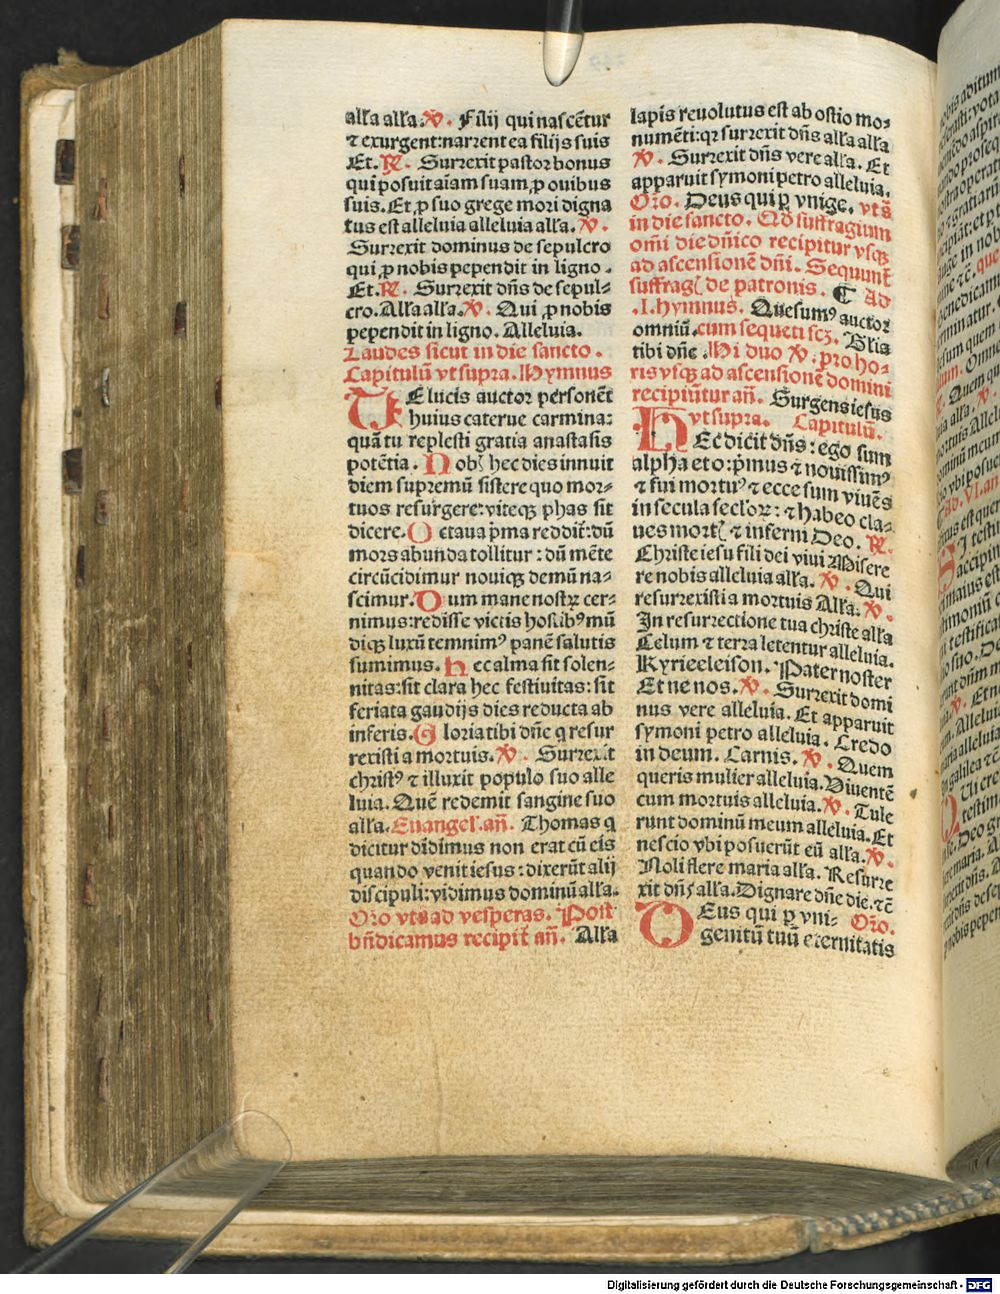 alľa alľa. ℣. Filij qui nascẽtur
⁊ exurgent: narrent ea filijs suis
Et. ℟. Surrexit pastor bonus
qui posuit aĩam suam, ꝓ ouibus
suis. Et ꝓ suo grege mori digna
tus est alleluia alleluia alľa. ℣.
Surrexit dominus de sepulcro
qui ꝓ nobis pependit in ligno.
Et. ℟. Surrexit dñs de sepul-
cro. Alľa alľa. ℣. Qui ꝓ nobis
pependit in ligno. Alleluia.
Laudes sicut in die sancto.
Capitulũ vt supra. Hymnus
TE lucis auctor personẽt
huius caterue carmina:
quã tu replesti gratia anastasis
potẽtia. Nobꝭ hec dies innuit
diem supremũ sistere quo mor-
tuos resurgere: viteqꝫ phas sit
dicere. Octaua p̃ma reddit: dũ
mors abunda tollitur: dũ mẽte
circũcidimur nouiqꝫ demũ na-
scimur. Dum mane nostrꝝ cer-
nimus: redisse victis hostibꝰ mũ
diqꝫ luxũ temnimꝰ panẽ salutis
sumimus. Hec alma sit solen-
nitas: sit clara hec festiuitas: sit
feriata gaudijs dies reducta ab
inferis. Gloria tibi dñe q resur
rexisti a mortuis. ℣. Surrexit
christꝰ ⁊ illuxit populo suo alle
luia. Quẽ redemit sangine suo
alľa. Euangel. añ. Thomas q
dicitur didimus non erat cũ eis
quando venit iesus: dixerũt alij
discipuli: vidimus dominũ alľa.
Oro vts ad vesperas. Post
bñdicamus recipit̃ añ. Alľa
lapis reuolutus est ab ostio mo-
numẽti: qꝛ surrexit dñs alľa alľa
℣. Surrexit dñs vere alľa. Et
apparuit symoni petro alleluia.
Oro. Deus qui ꝑ vnige. vts
in die sancto. Ad suffragium
omĩ die dñico recipitur vsqꝫ
ad ascensionẽ dñi. Sequunt̃
suffragꝭ de patronis. ¶ Ad
.I. hymnus. Quesumꝰ auctor
omniũ. cum sequẽti scꝫ. Glia
tibi dñe. Hi duo ℣. pro ho-
ris vsqꝫ ad ascensionẽ domini
recipiũtur añ. Surgens iesus
vt supra. Capitulũ.
HEc dicit dñs: ego sum
alpha et o: p̃mus ⁊ nouissimꝰ
⁊ fui mortuꝰ ⁊ ecce sum viuẽs
in secula secľoꝝ: ⁊ habeo cla-
ues mortꝭ ⁊ inferni Deo. ℟.
Christe iesu fili dei viui Misere
re nobis alleluia alľa. ℣. Qui
resurrexisti a mortuis Alľa. ℣.
In resurrectione tua christe alľa
Celum ⁊ terra letentur alleluia.
Kyrieeleison. Pater noster
Et ne nos. ℣. Surrexit domi
nus vere alleluia. Et apparuit
symoni petro alleluia. Credo
in deum. Carnis. ℣. Quem
queris mulier alleluia. Viuentẽ
cum mortuis alleluia. ℣. Tule
runt dominũ meum alleluia. Et
nescio vbi posuerũt eũ alľa. ℣.
Noli flere maria alľa. Resurre
xit dñs alľa. Dignare dñe die. ⁊c̃
DEus qui ꝑ vni- Oro.
genitũ tuũ eternitatis
Digitalisierung gefördert durch die Deutsche Forschungsgemeinschaft - DFG